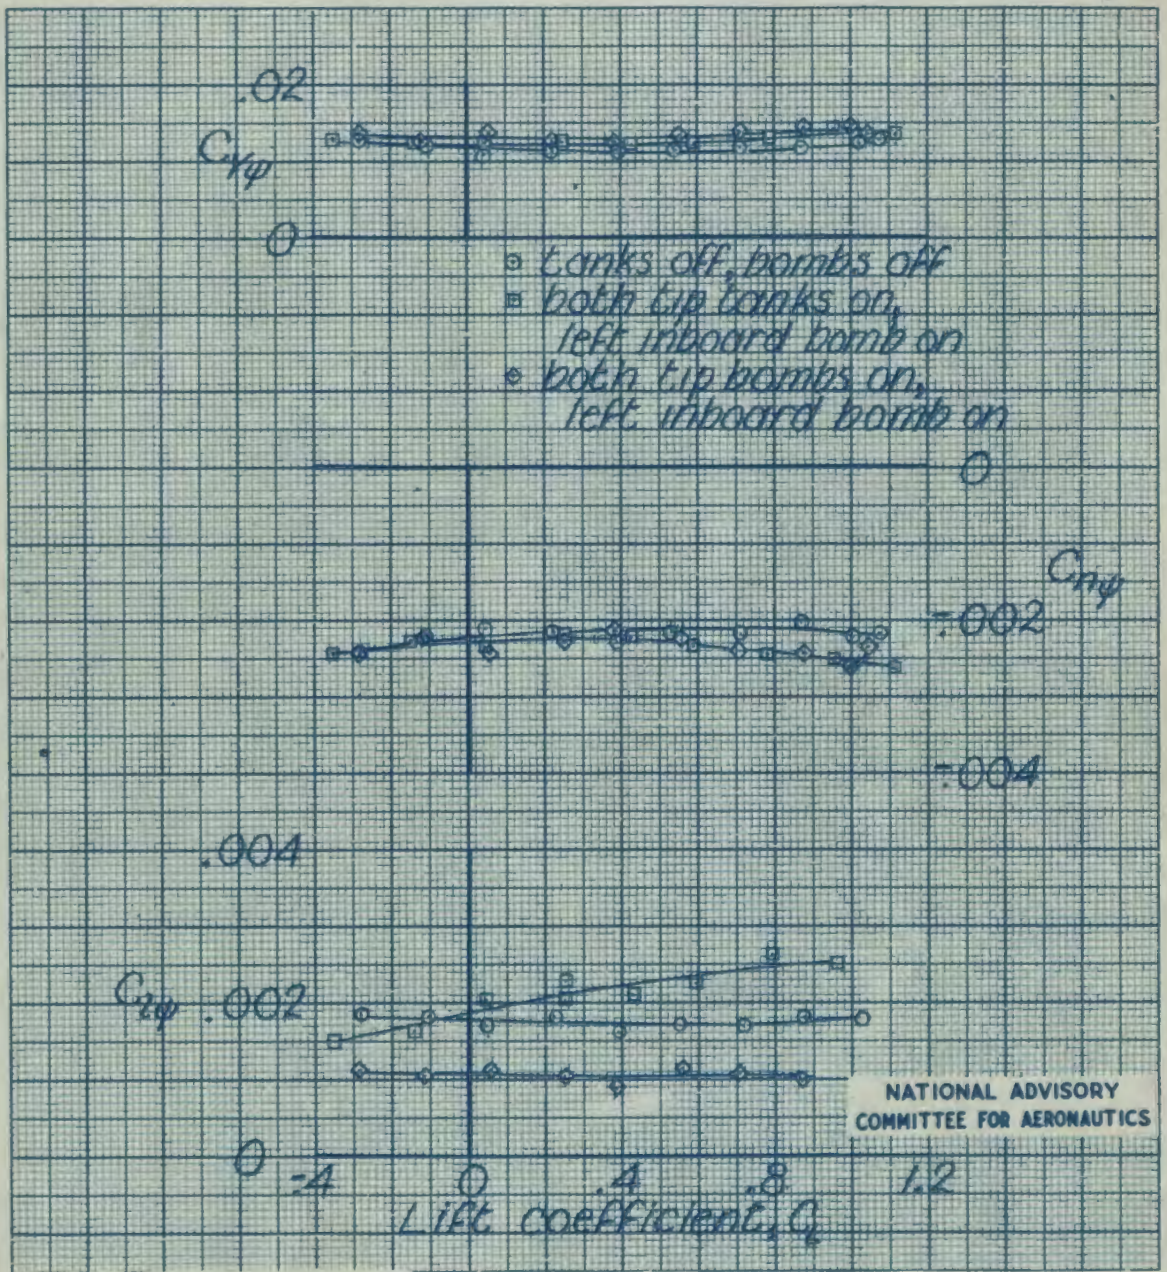 .02
C_Yψ
0
○ tanks off, bombs off
□ both tip tanks on,
left inboard bomb on
◇ both tip bombs on,
left inboard bomb on
0
C_nψ
-.002
-.004
.004
C_lψ .002
NATIONAL ADVISORY
COMMITTEE FOR AERONAUTICS
0
-.4 0 .4 .8 1.2
Lift coefficient, C_L